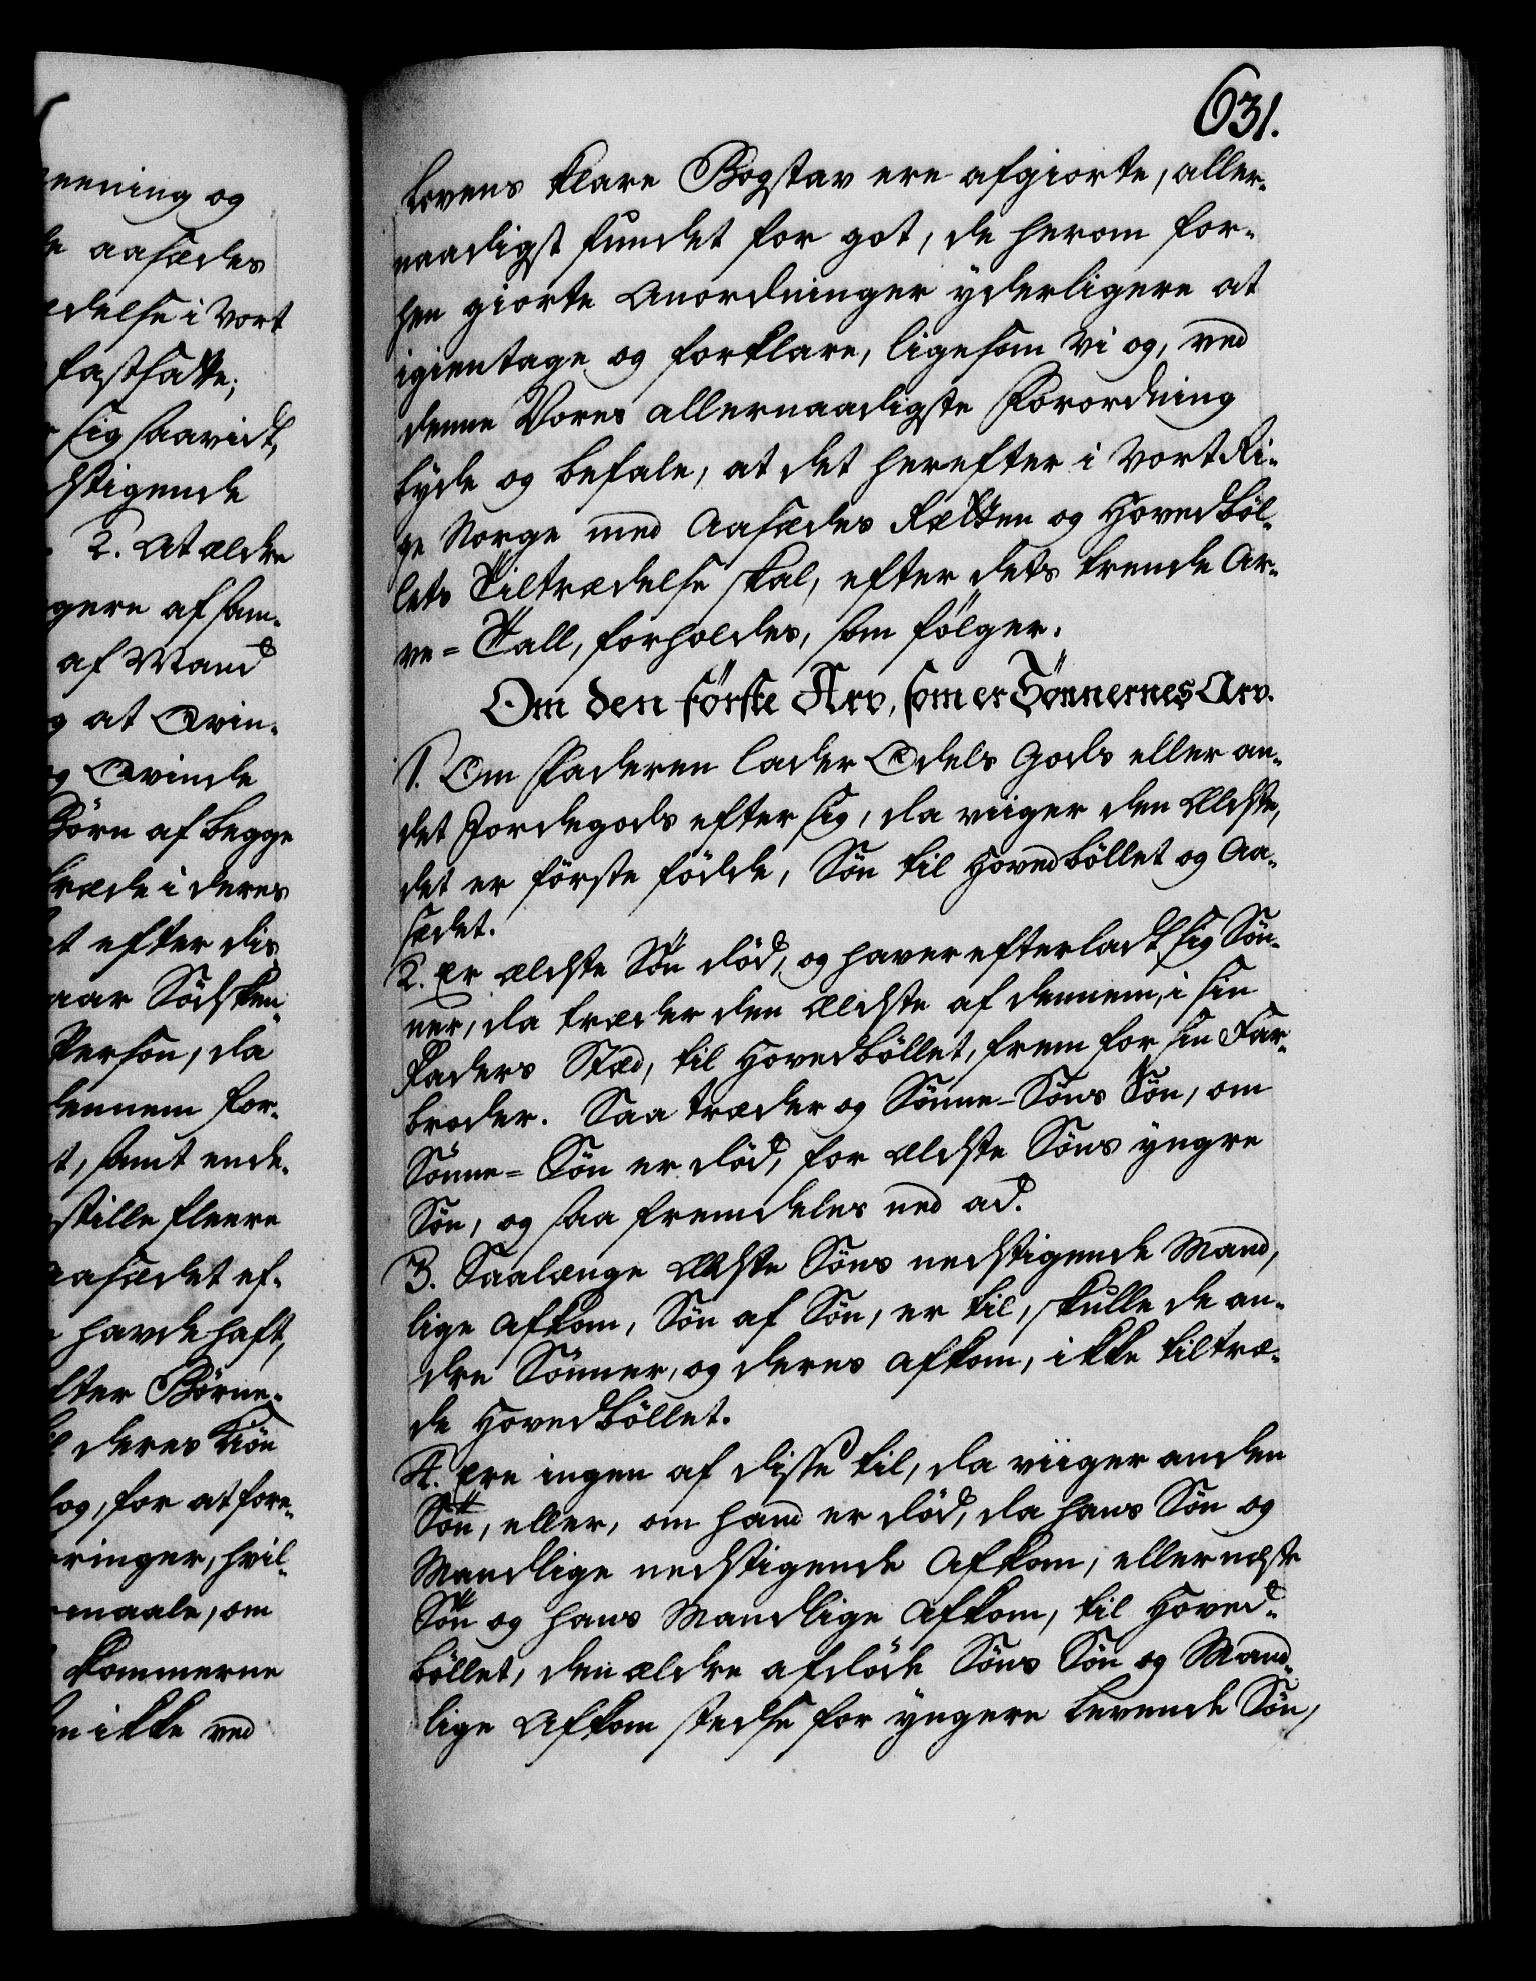 eening og
e aasædes
edelse i Vort
fastsatte;
sig saavidt,
dstigende
2. At ældre
gere af sam-
af Mand
g at Qvin-
g Qvinde
Børn af begge
træde i deres
t efter dis
aar Södsken
Person, da
dennem for-
t, samt ende-
stille fleere
aasædet ef-
havde haft,
fter Börne-
l deres Kiön
og, for at fore-
ringer, hvil-
maale, om
kommerne
n ikke ved
631.
Lovens klare Bogstav ere afgiorte, aller-
naadigst fundet for got, de herom for-
hen giorte Anordninger yderligere at
igientage og forklare, ligesom Vi og, ved
denne Vores allernaadigste Forordning
byde og befale, at det herefter i Vort Ri-
ge Norge med Aasædes Rætten og Hovedböl-
lets Tiltrædelse skal, efter dets trende Ar-
ve-Tall, forholdes, som fölger.
Om den förste Arv, som er Sönnernes Arv.
1. Om Faderen lader Odels Gods eller an-
det Jordegods efter sig, da viiger den Ældste,
det er förste födde, Sön til Hovedböllet og Aa-
sædet.
2. Er ældste Sön död, og haver efterladt sig Sön-
ner, da træder den Ældste af dennem, i sin
Faders Stæd, til Hovedböllet, frem for sin Far-
broder. Saa træder og Sönne-Söns Sön, om
Sönne-Sön er död, for ældste Söns yngre
Sön, og saa fremdeles ned ad.
3. Saalænge Ældste Söns nedstigende Mand-
lige Afkom, Sön af Sön, er til, skulle de an-
dre Sönner, og deres Afkom, ikke tiltræ-
de Hovedböllet.
4. Ere ingen af disse til, da viiger anden
Sön, eller, om hand er död, da hans Sön og
Mandlige nedstigende Afkom, eller næste
Sön og hans Mandlige Afkom, til Hoved-
böllet, den ældre afdöde Söns Sön og Mand-
lige Afkom stedse for yngere levende Sön,